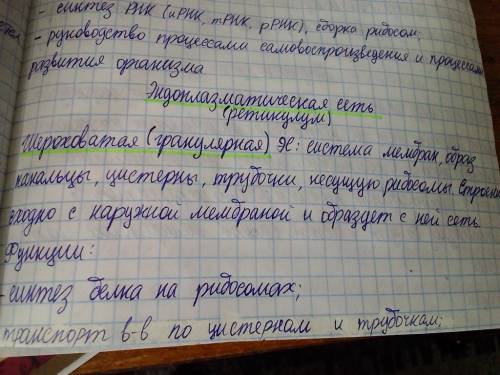 - синтез РНК (иРНК, тРНК, рРНК), сборка рибосом;
- руководство процессами самовоспроизведения и процессами
развития организма
Эндоплазматическая сеть
(ретикулум)
Шероховатая (гранулярная) ЭС: система мембран, образ.
канальцы, цистерны, трубочки, несущую рибосомы. Строение
сходно с наружной мембраной и образует с ней сеть.
Функции:
- синтез белка на рибосомах;
транспорт в-в по цистернам и трубочкам;